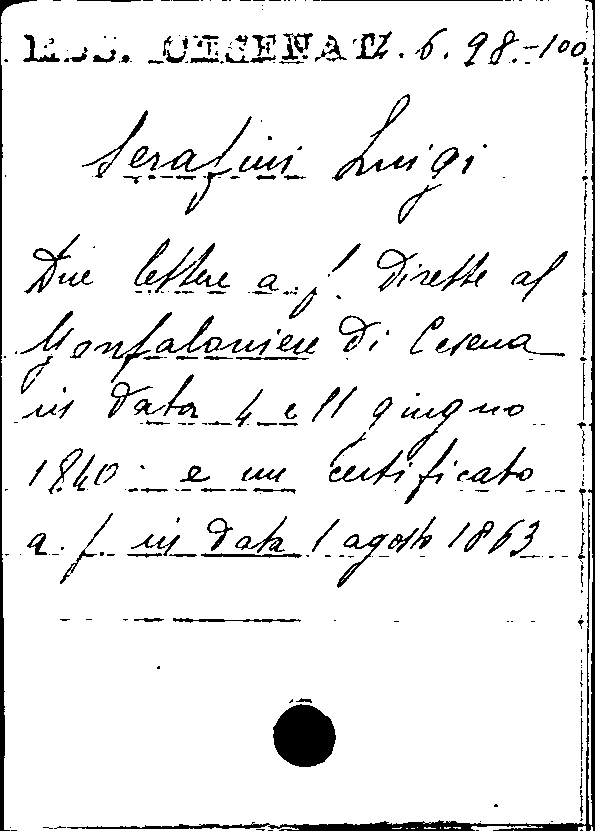 MSS. CESENATI. 6. 98.-100
Serafini Luigi
Due lettere a. f. dirette al
Gonfaloniere di Cesena
in data 4 e 11 giugno
1840 - e un certificato
a. f. in data 1 agosto 1863